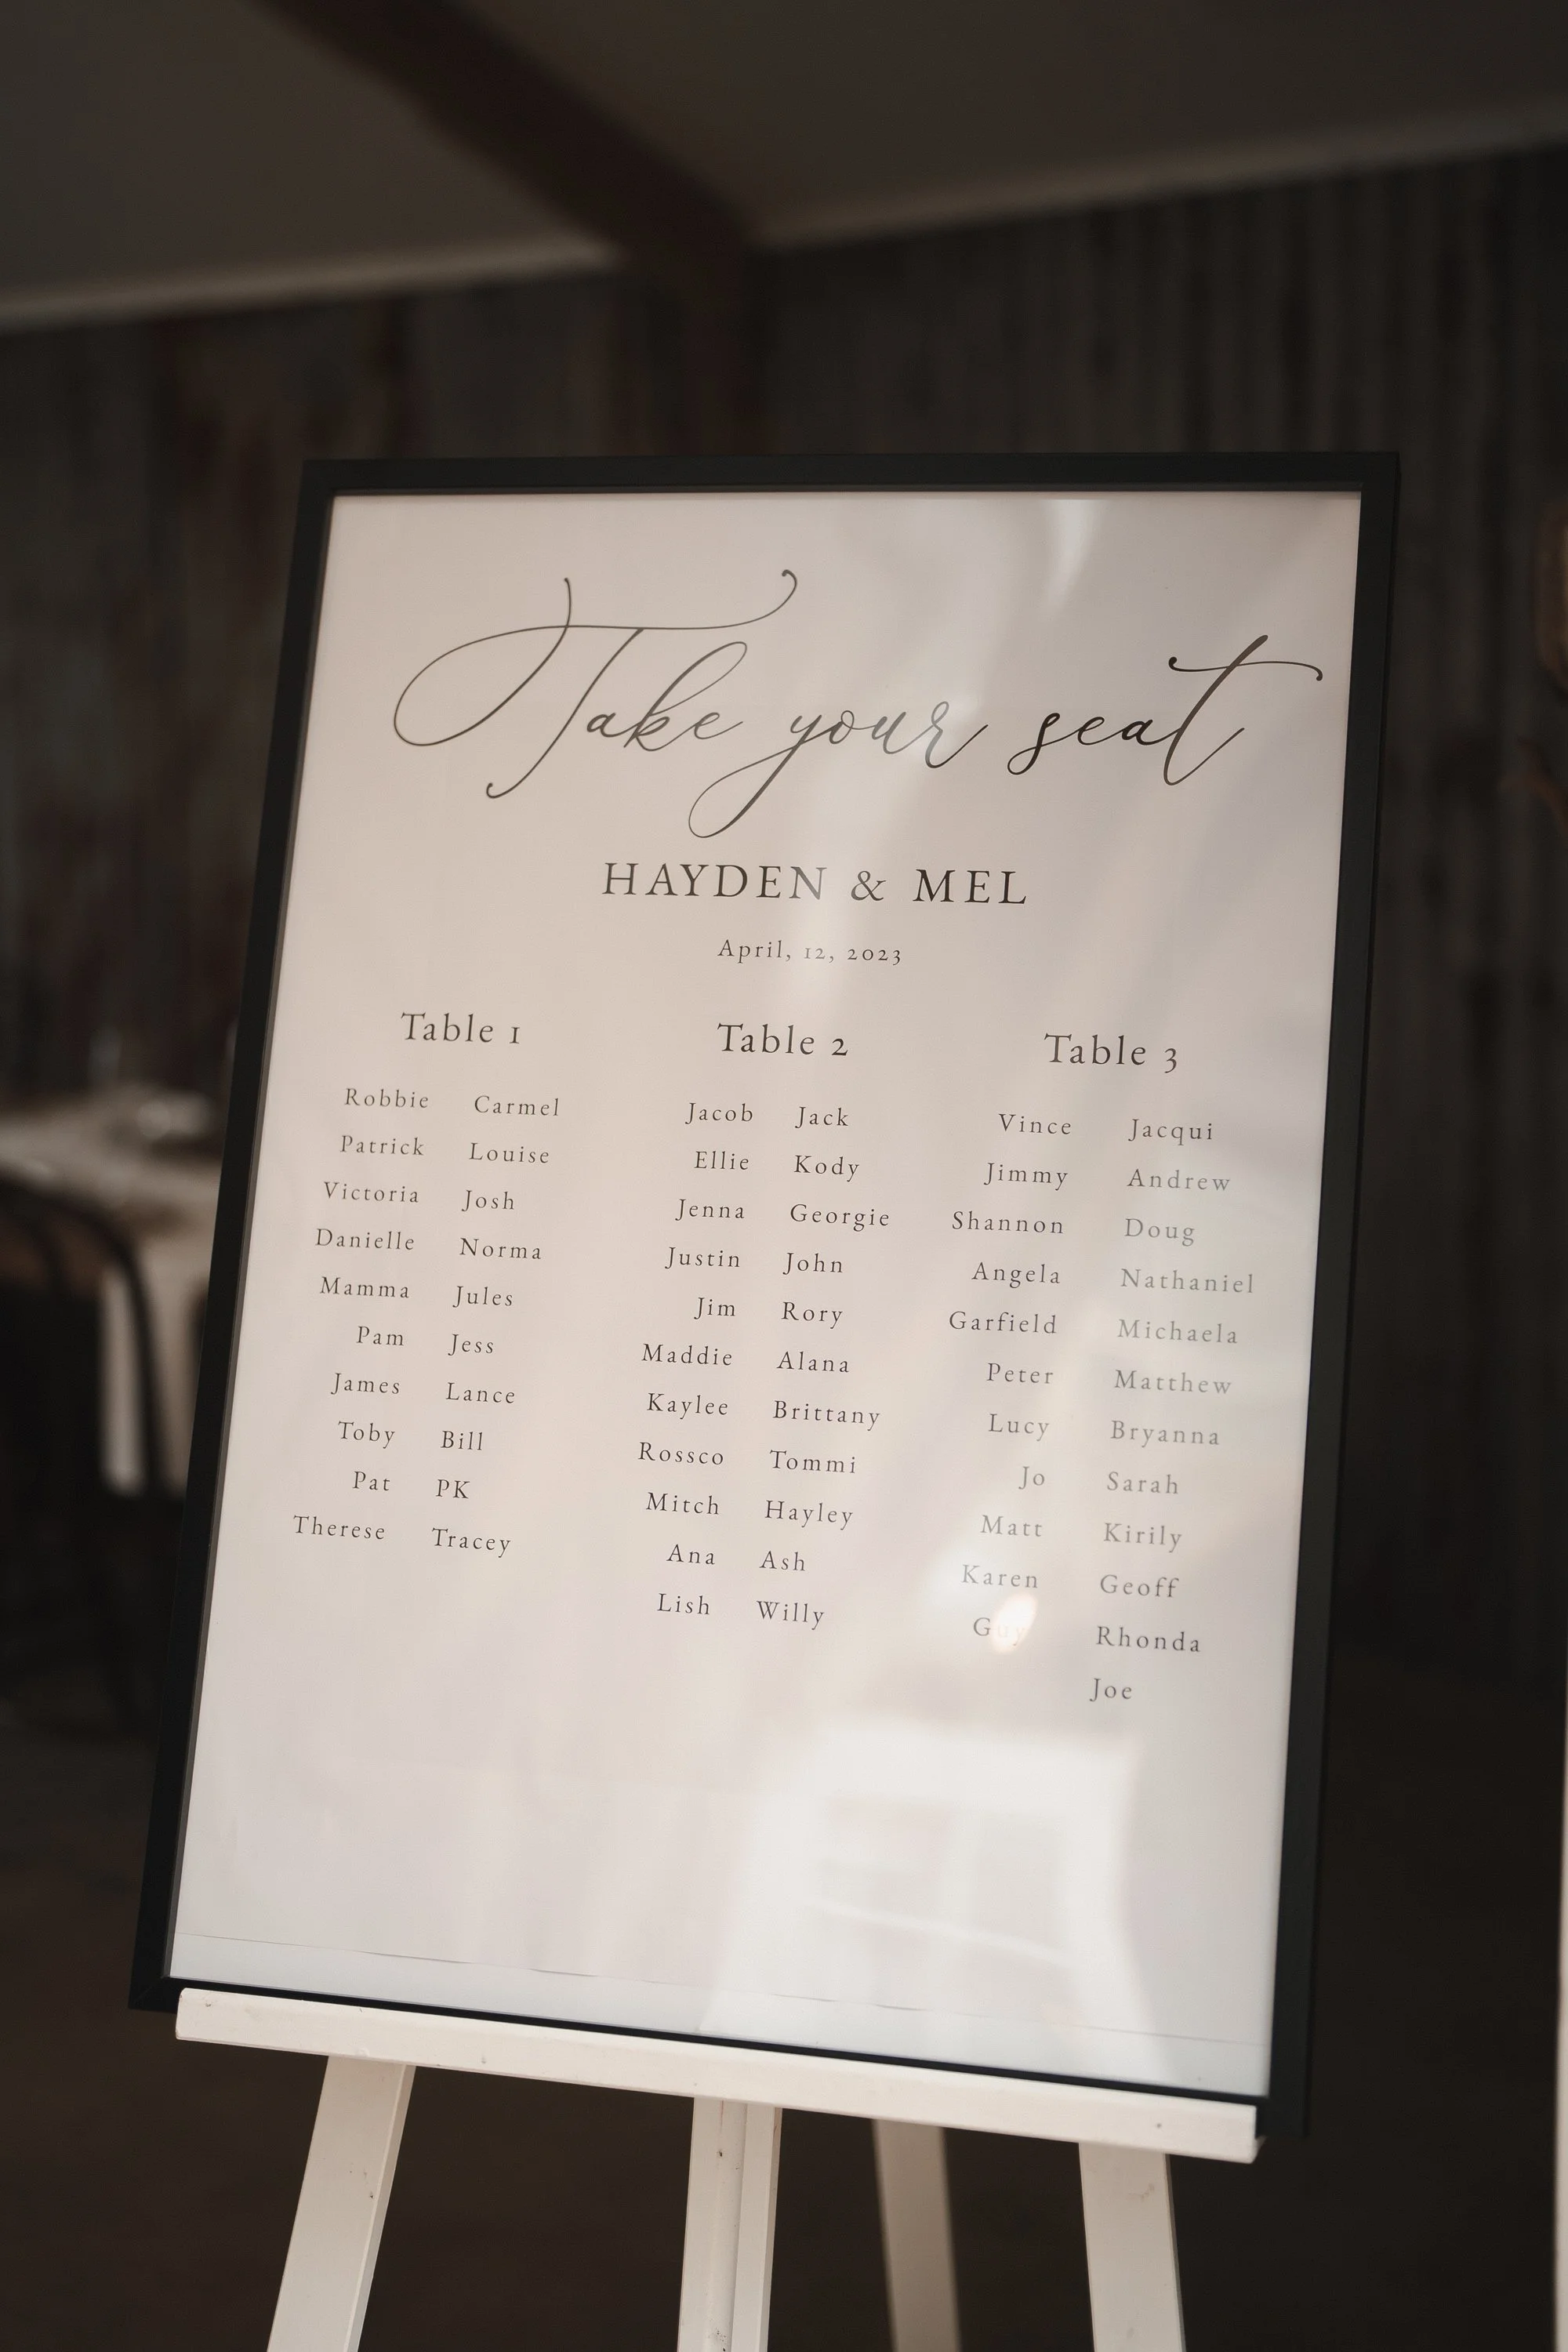 Take your seat
HAYDEN & MEL
April, 12, 2023
Table 1
Robbie Carmel
Patrick Louise
Victoria Josh
Danielle Norma
Mamma Jules
Pam Jess
James Lance
Toby Bill
Pat PK
Therese Tracey
Table 2
Jacob Jack
Ellie Kody
Jenna Georgie
Justin John
Jim Rory
Maddie Alana
Kaylee Brittany
Rossco Tommi
Mitch Hayley
Ana Ash
Lish Willy
Table 3
Vince Jacqui
Jimmy Andrew
Shannon Doug
Angela Nathaniel
Garfield Michaela
Peter Matthew
Lucy Bryanna
Jo Sarah
Matt Kirily
Karen Geoff
Guy Rhonda
Joe